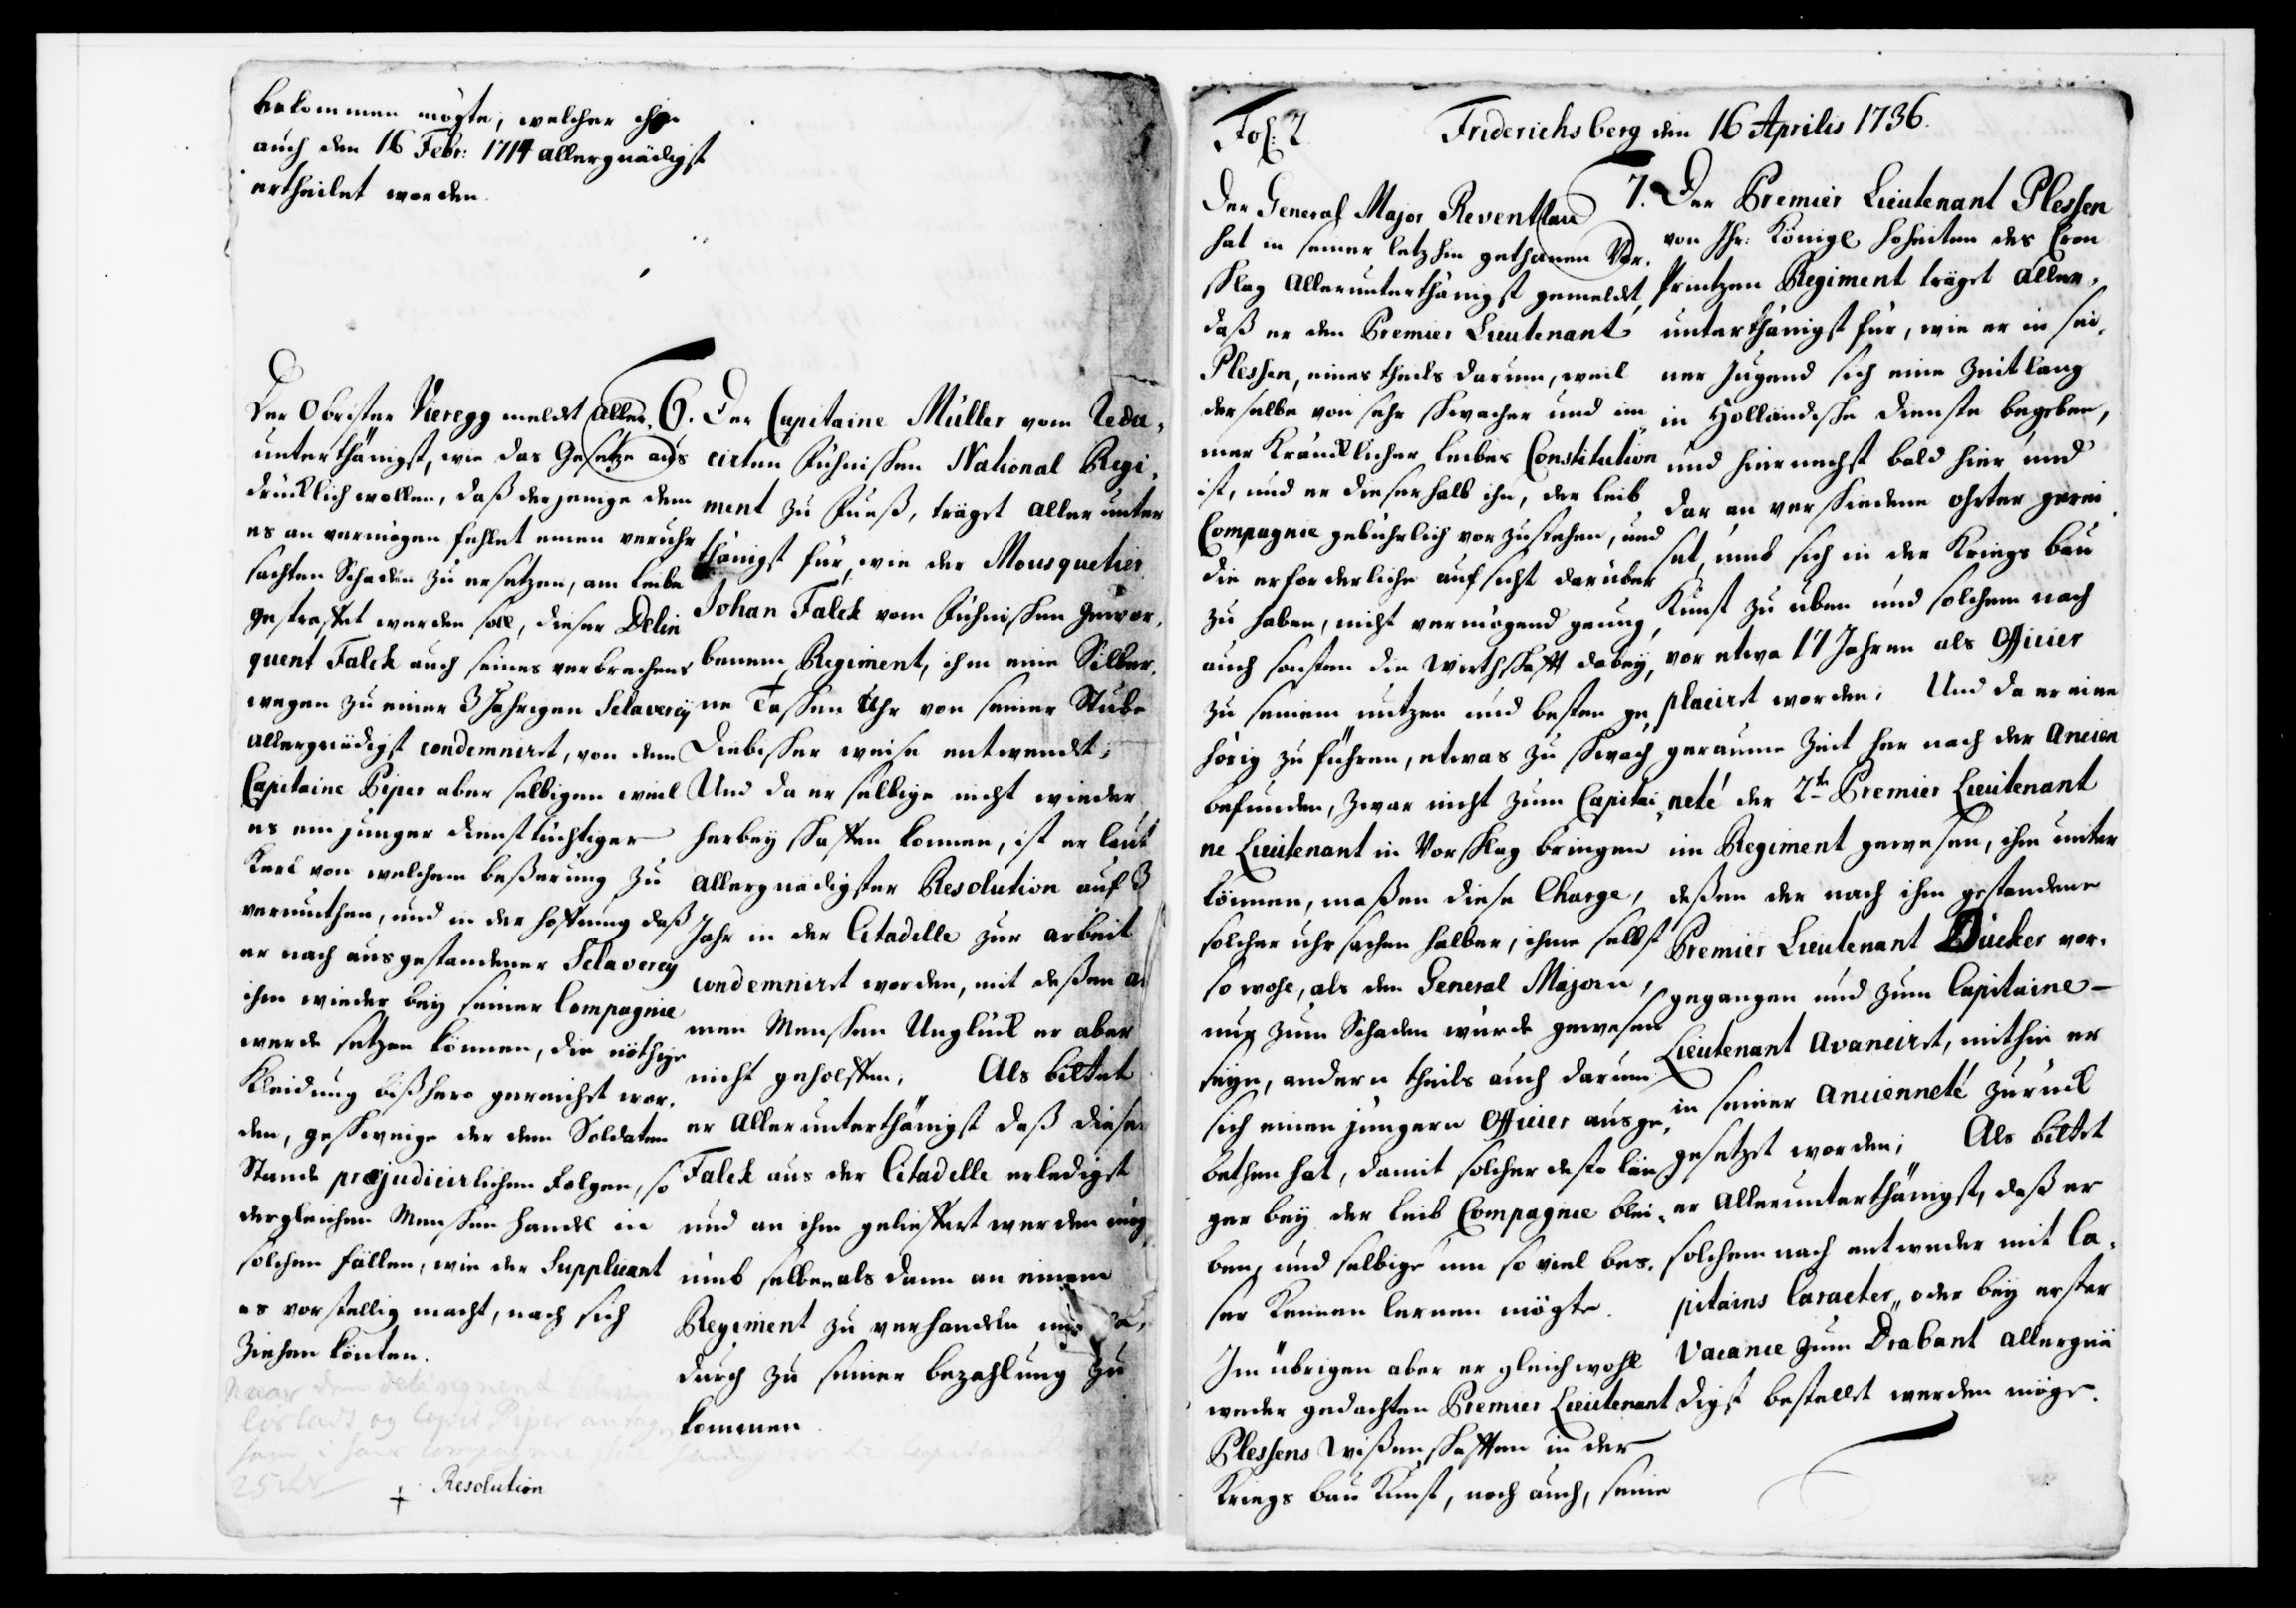 bekommen mögte, welcher ihm
auch den 16 Febr: 1714 allergnädigst
ertheilet worden.
Der Obrister Vieregg meldt aller-
unterthänigst, wie das Gesetze aus
drücklich wollen, daß derjenige dem
es an vermögen fehlet einen veruhr
sachten Schaden zu ersetzen, am Leibe
gestraffet werden soll, dieser Delin
quent Falck auch seines verbrechens
wegen zu einer 3 Jahrigen Sclaverey
allergnädigst condemniret, von dem
Capitaine Piper aber selbigen weil
es ein junger dienst tüchtiger
Kerl von welchem beßerung zu
vermuthen, und in der hoffnung daß
er nach ausgestandener Sclaverey
ihm wieder bey seiner Compagnie
werde setzen können, die nöthige
Kleidung bißhero gereichet wor-
den, geschweige der dem Soldaten
Stande præjudicirlichen Folgen, so
dergleichen Menschen handel in
solchen fällen, wie der Supplicant
es vorstellig macht, nach sich
Ziehen könten.
25
† Resolution
6. Der Capitaine Müller vom Redu-
cirten Fühnischen National Regi-
ment zu Fueß, träget aller unter
thänigst für, wie der Mousquetier
Johan Falck vom Fühnischen Gewor-
benem Regiment, ihm eine Silber-
ne Taschen Uhr von seiner Stube
Diebischer weise entwendt;
Und da er selbige nicht wieder
herbey schaffen konnen, ist er laut
allergnädigster Resolution auf 3
Jahr in der Citadelle zur arbeit
condemniret worden, mit deßen ar
men Menschen Unglück er aber
nicht geholffen, Als bittet
er allerunterthänigst daß dieser
Falck aus der Citadelle erlediget
und an ihm geliefert werden mög
umb selben als dann an einem
Regiment zu verhandeln und da,
durch zu seiner bezahlung zu
kommen.
Fol: 2. Friderichsberg den 16 Aprilis 1736.
Der General Major Reventlau
hat in seiner letzhin gethanen Vor-
schlag Allerunterthänigst gemeldet,
daß er den Premier Lieutenant
Plessen, eines theils darum, weil
derselbe von sehr schwacher und im
mer Kräncklicher Leibes Constitution
ist, und er dieserhalb ihn, der Leib
Compagnie gebührlich vorzustehen, und
die erforderliche aufsicht darüber
zu haben, nicht vermögend genug,
auch sonsten die wirthschafft dabey,
zu seinem nutzen und besten ge,
hörig zu führen, etwas zu schwach
befunden, zwar nicht zum Capitai-
ne Lieutenant in Vorschlag bringen
können, maßen diese Charge,
solcher uhrsachen halber, ihme selbst
so wohl, als dem General Majorn,
nur zum Schaden würde gewesen
seyn, andern theils auch darum
sich einen jüngern Officier ausge-
bethen hat, damit solcher desto län
ger bey der Leib Compagnie blei-
ben, und selbige um so viel bes-
ser Kennen lernen mögte.
Im übrigen aber er gleichwohl
weder gedachten Premier Lieutenant
Plessens wißenschafften in der
Kriegs bau Kunst, noch auch, seine
7. Der Premier Lieutenant Plessen
von Ihr: Königl Hoheiten des Cron
Printzen Regiment träget aller-
unterthänigst für, wie er in sei-
ner Jugend sich eine Zeitlang
in Hollandische dienste begeben,
und hiernechst bald hier und
dar an verschiedene ohrter gerei-
set, umb sich in der Kriegs bau
Kunst zu üben und solchem nach
vor etwa 17 Jahren als Officier
placiret worden; Und da er eine
geraume Zeit her nach der ancien
neté der 2te Premier Lieutenant
im Regiment gewesen, ihm unter
deßen der nach ihm gestandene
Premier Lieutenant Dücker vor-
gegangen und zum Capitaine-
Lieutenant avanciret, mithin er
in seiner ancienneté zurück
gesetzet worden; Als bittet
er Allerunterthänigst, daß er
solchem nach entweder mit Ca-
pitains Caracter, oder bey erster
Vacance zum Drabant allergnä
digst bestellet werden möge.